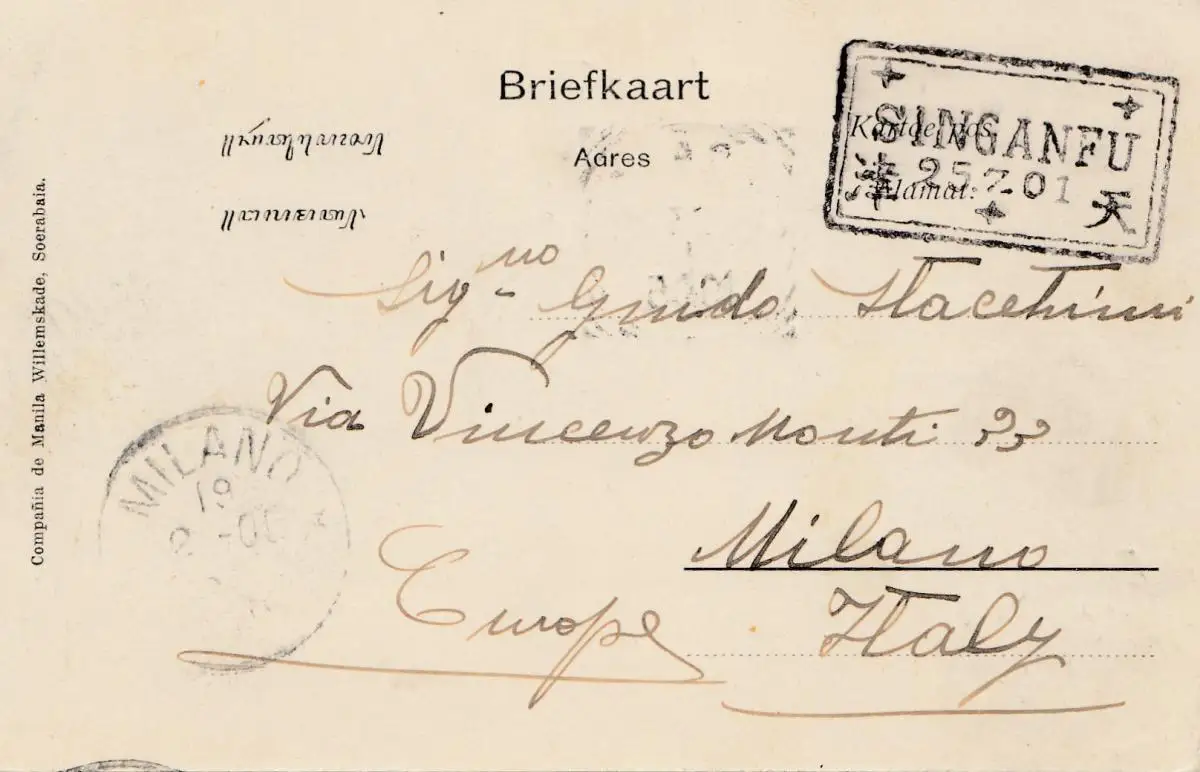 Briefkaart
Adres
Kartoe pos
Alamat:
SINGANFU
津 25 7 01 天
Sig.no Guido Stacchini
Via Vincenzo Monti 33
Milano
Europe Italy
MILANO
19
Compañia de Manila Willemskade, Soerabaia.